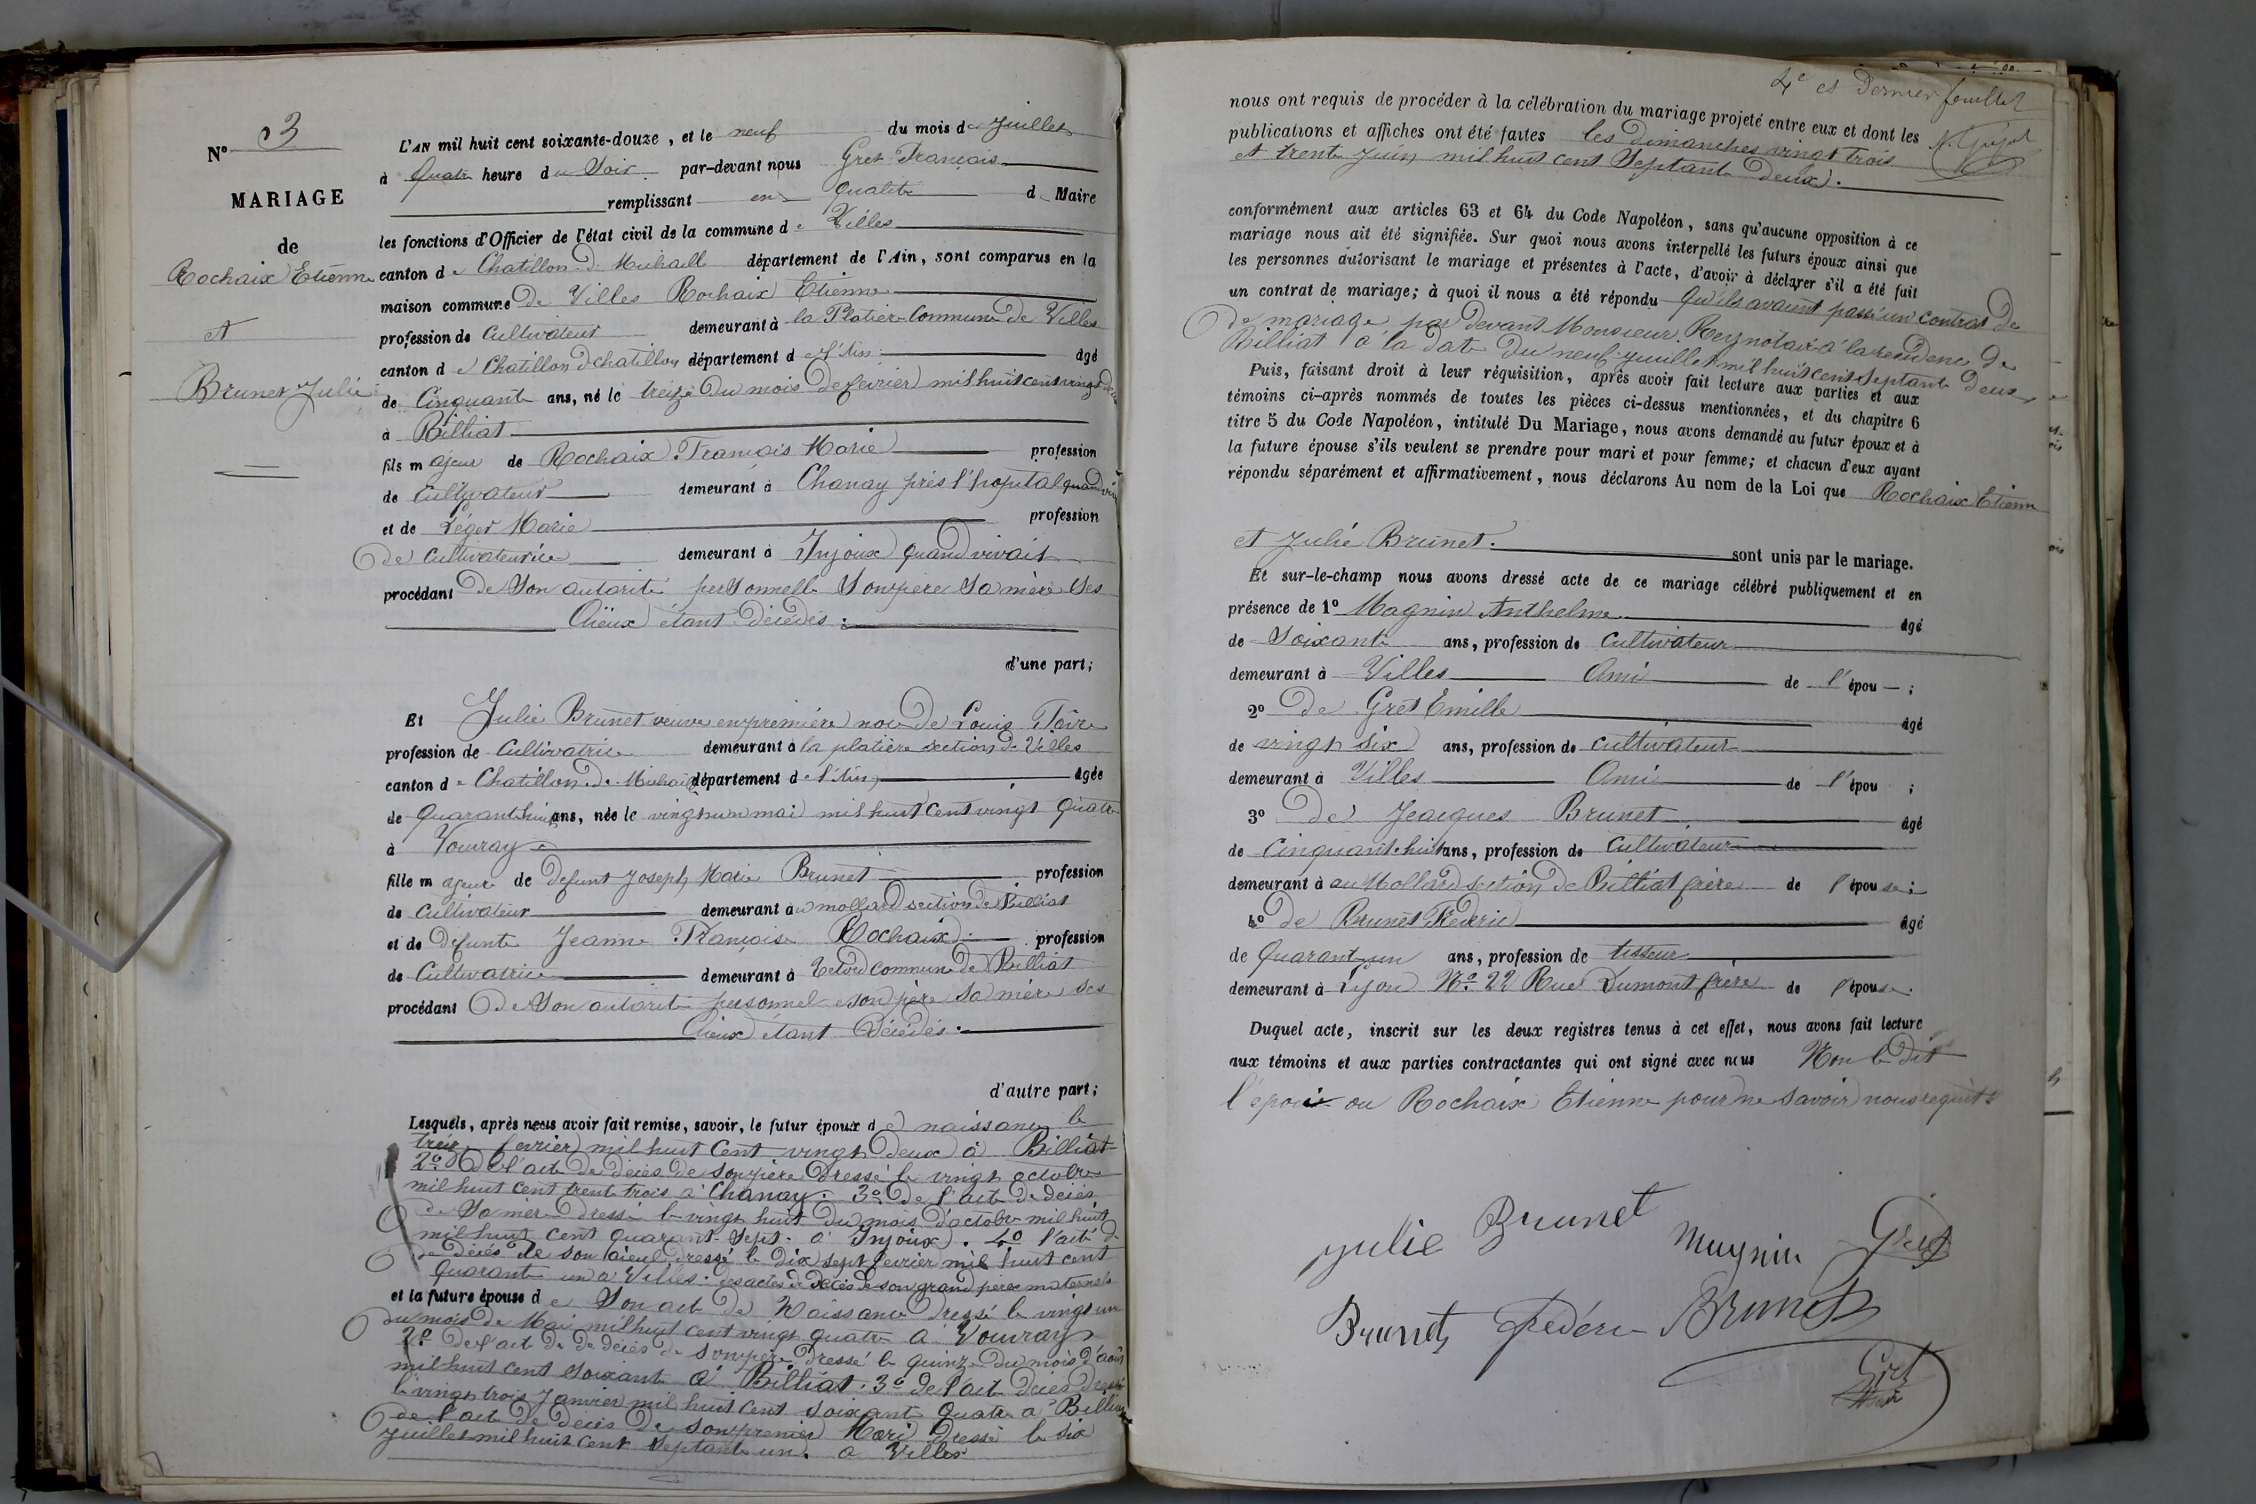 N° 3
MARIAGE
de
Rochaix Etienne
et
Brunet Julie
L'AN mil huit cent soixante-douze, et le neuf du mois de Juillet
à Quatre heure du Soir par-devant nous Gret François
remplissant en qualité d Maire
les fonctions d'Officier de l'état civil de la commune de Villes
canton de Chatillon de Michaille département de l'Ain, sont comparus en la
maison commune De Villes Rochaix Etienne
profession de Cultivateur demeurant à la Platière Commune De Villes
canton de Chatillon département de l'Ain âgé
de Cinquante ans, né le treize Du mois de février mil huit cent vingt deux
à Billiat
fils majeur de Rochaix François Marie profession
de cultivateur demeurant à Chanay près l'hopital quand
et de Léger Marie profession
de cultivateurice demeurant à Injoux quand vivait
procédant De Son autorité personnelle Son père Sa mère Ses
Aïeux étant décédés.
d'une part;
Et Julie Brunet veuve en première noce De Louis
profession de Cultivatrice demeurant à la platière section de Villes
canton de Chatillon De Michaille département de l'Ain âgée
de Quarante huit ans, née le vingt un mai mil huit cent vingt quatre
à Vouvray
fille majeure de defunt Joseph Marie Brunet profession
de Cultivateur demeurant au mollard section de Billiat
et de défunte Jeanne Françoise Rochaix profession
de Cultivatrice demeurant à commune de Billiat
procédant De Son autorité personnel son père sa mère ses
Aïeux étant Décédés.
d'autre part;
Lesquels, après nous avoir fait remise, savoir, le futur époux de naissance le
treize fevrier mil huit Cent vingt deux à Billiat
2° de l'acte de décès de son père Dressé le vingt octobre
mil huit cent trente trois à Chanay. 3° De l'acte de décès
de Sa mere Dressé le vingt huit du mois d'octobre mil huit
mil huit cent quarante Sept à Injoux. 4° l'acte de
de décès de son aieul dressé le dix sept fevrier mil huit cent
Quarante un à Villes. les actes de décès de son grand père maternels
et la future épouse de Son acte De Naissance dressé le vingt un
du mois de Mai mil huit cent vingt quatre à Vouvray
2° De l'acte de de décès de son père dressé le Quinze Du mois d'août
mil huit cent Soixante à Billiat. 3° de l'acte décès dressé
le vingt trois Janvier mil huit Cent soixante quatre à Billiat
de l'acte de décès De son premier Mari dressé le Six
Juillet mil huit cent Septante un. à Villes
4e et Dernier feuillet
nous ont requis de procéder à la célébration du mariage projeté entre eux et dont les
publications et affiches ont été faites les dimanches vingt trois
et trente Juin mil huit cent Septante Deux.
conformément aux articles 63 et 64 du Code Napoléon, sans qu'aucune opposition à ce
mariage nous ait été signifiée. Sur quoi nous avons interpellé les futurs époux ainsi que
les personnes autorisant le mariage et présentes à l'acte, d'avoir à déclarer s'il a été fait
un contrat de mariage; à quoi il nous a été répondu Qu'ils avaient passé un contrat De
De mariage par devant Monsieur Rey notaire à la residence De
Billiat à la date Du neuf juillet mil huit cent Septante Deux
Puis, faisant droit à leur réquisition, après avoir fait lecture aux parties et aux
témoins ci-après nommés de toutes les pièces ci-dessus mentionnées, et du chapitre 6
titre 5 du Code Napoléon, intitulé Du Mariage, nous avons demandé au futur époux et à
la future épouse s'ils veulent se prendre pour mari et pour femme; et chacun d'eux ayant
répondu séparément et affirmativement, nous déclarons Au nom de la Loi que Rochaix Etienne
et Julie Brunet. sont unis par le mariage.
Et sur-le-champ nous avons dressé acte de ce mariage célébré publiquement et en
présence de 1° Magnin Anthelme âgé
de Soixante ans, profession de Cultivateur
demeurant à Villes Ami de l'épou ;
2° De Gret Emille âgé
de vingt six ans, profession de cultivateur
demeurant à Villes Ami de l'épou ;
3° De Jeacques Brunet âgé
de Cinquante huit ans, profession de Cultivateur
demeurant à au Mollard section De Billiat frère de l'épouse;
4° De Brunet Fréderic âgé
de Quarante un ans, profession de tisseur
demeurant à Lyon N° 22 Rue Dumont frère de l'épouse.
Duquel acte, inscrit sur les deux registres tenus à cet effet, nous avons fait lecture
aux témoins et aux parties contractantes qui ont signé avec nous Non le dit
l'époux ou Rochaix Etienne pour ne Savoir nous requit
Julie Brunet Magnin Gret
Brunet Frédéri Brunet
Gret
Maire